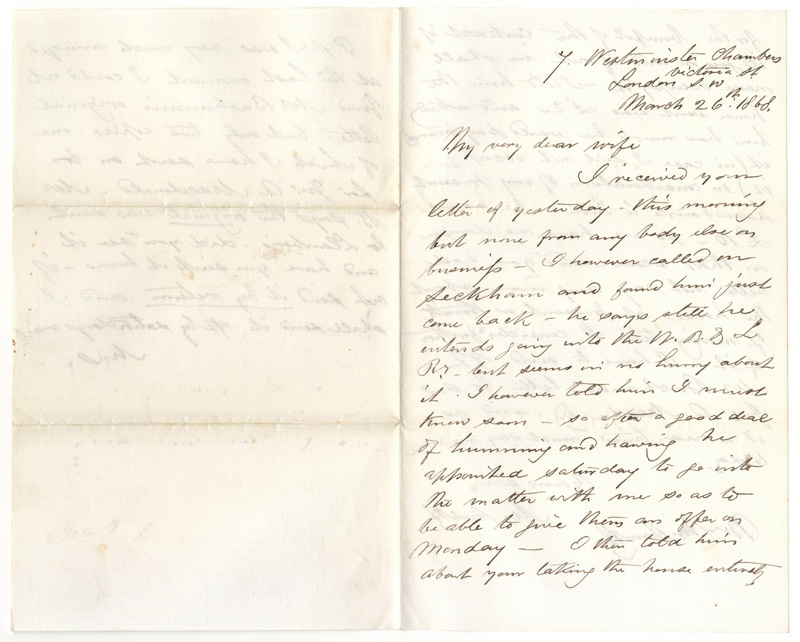 7. Westminster Chambers
Victoria St
London S.W
March 26th. 1868.
My very dear wife
I received your
letter of yesterday this morning
but none from any body else on
business – I however called on
Seckham and found him just
come back – he says still he
intends going into the W. B. & L
Ry – but seems in no hurry about
it. I however told him I must
know soon – so after a good deal
of humming and hawing he
appointed saturday to go into
the matter with me so as to
be able to give them an offer on
Monday – I then told him
about your taking the house entirely